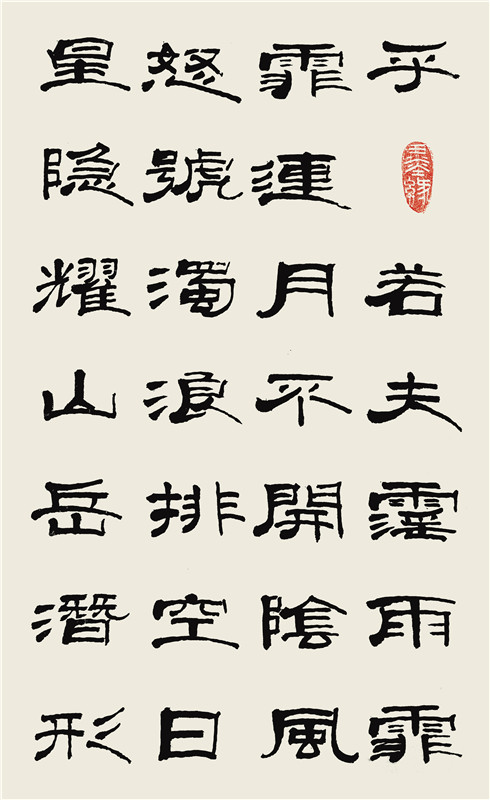 乎若夫霪雨霏
霏連月不開陰風
怒號濁浪排空日
星隐耀山岳潛形